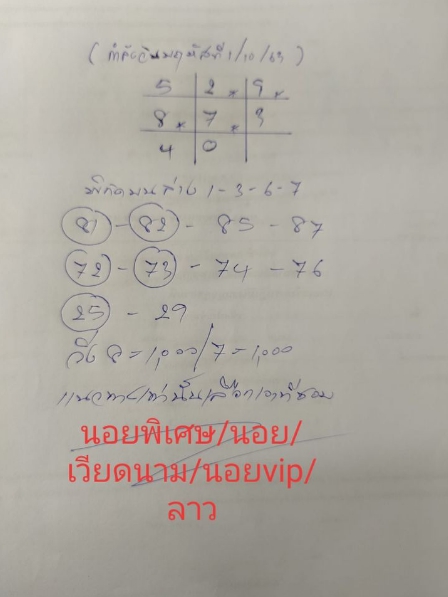 (กำลังวันพฤหัสที่ 1/10/63)
5 2 * 9 *
8 * 7 * 3
4 0
พิกัดบนล่าง 1-3-6-7
81 - 82 - 85 - 87
72 - 73 - 74 - 76
25 - 29
วิ่ง 8 = 1,000/7 = 1,000
แนวทางเท่านั้นเลือกเอาที่ชอบ
นอยพิเศษ/นอย/
เวียดนาม/นอยvip/
ลาว